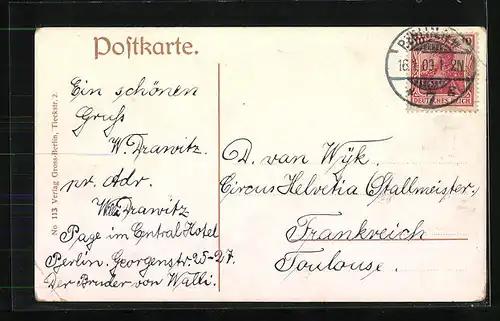 Postkarte.
Ein schönen
Gruss
W. Drawitz.
pr. Adr.
Willi Drawitz
Page im Central Hotel
Berlin. Georgenstr. 25-27.
Der Bruder von Walli.
No 113 Verlag Gross-Berlin, Tieckstr. 2.
D. van Wÿk.
Circus Helvetia (Stallmeister.)
Frankreich
Toulouse.
DEUTSCHES REICH
10